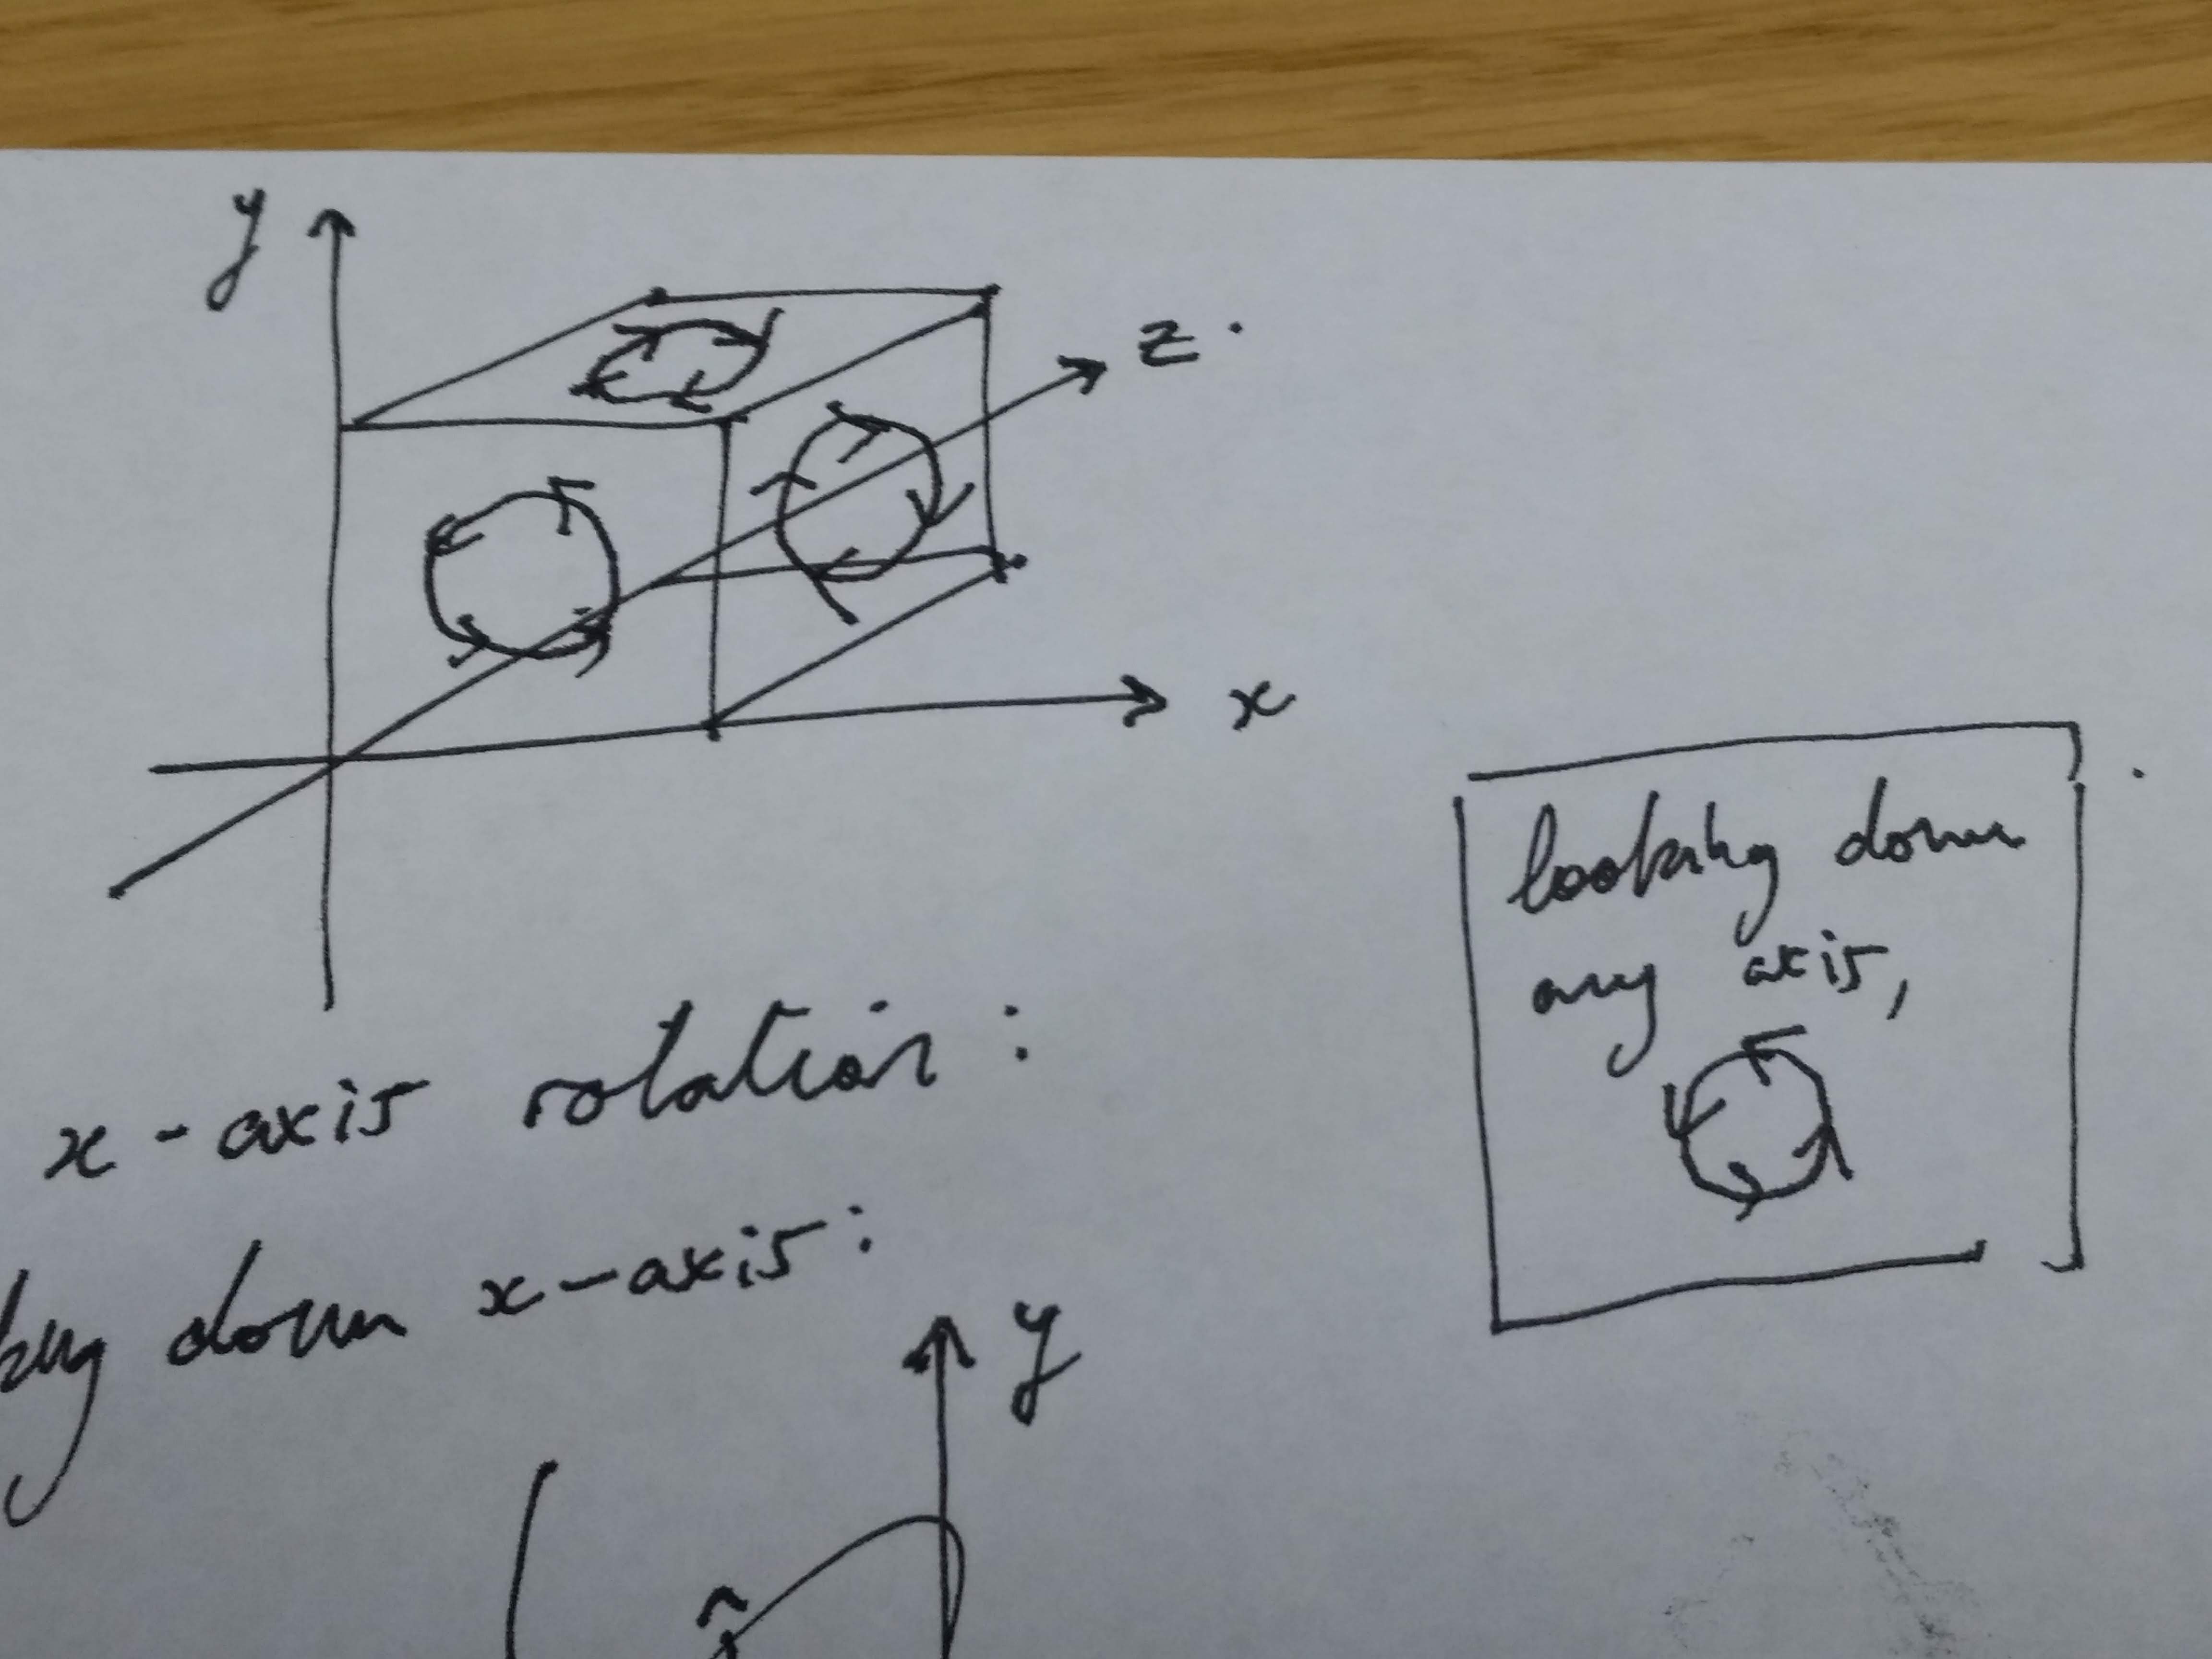 y
z
x
looking down
any axis,
x-axis rotation:
down x-axis:
y